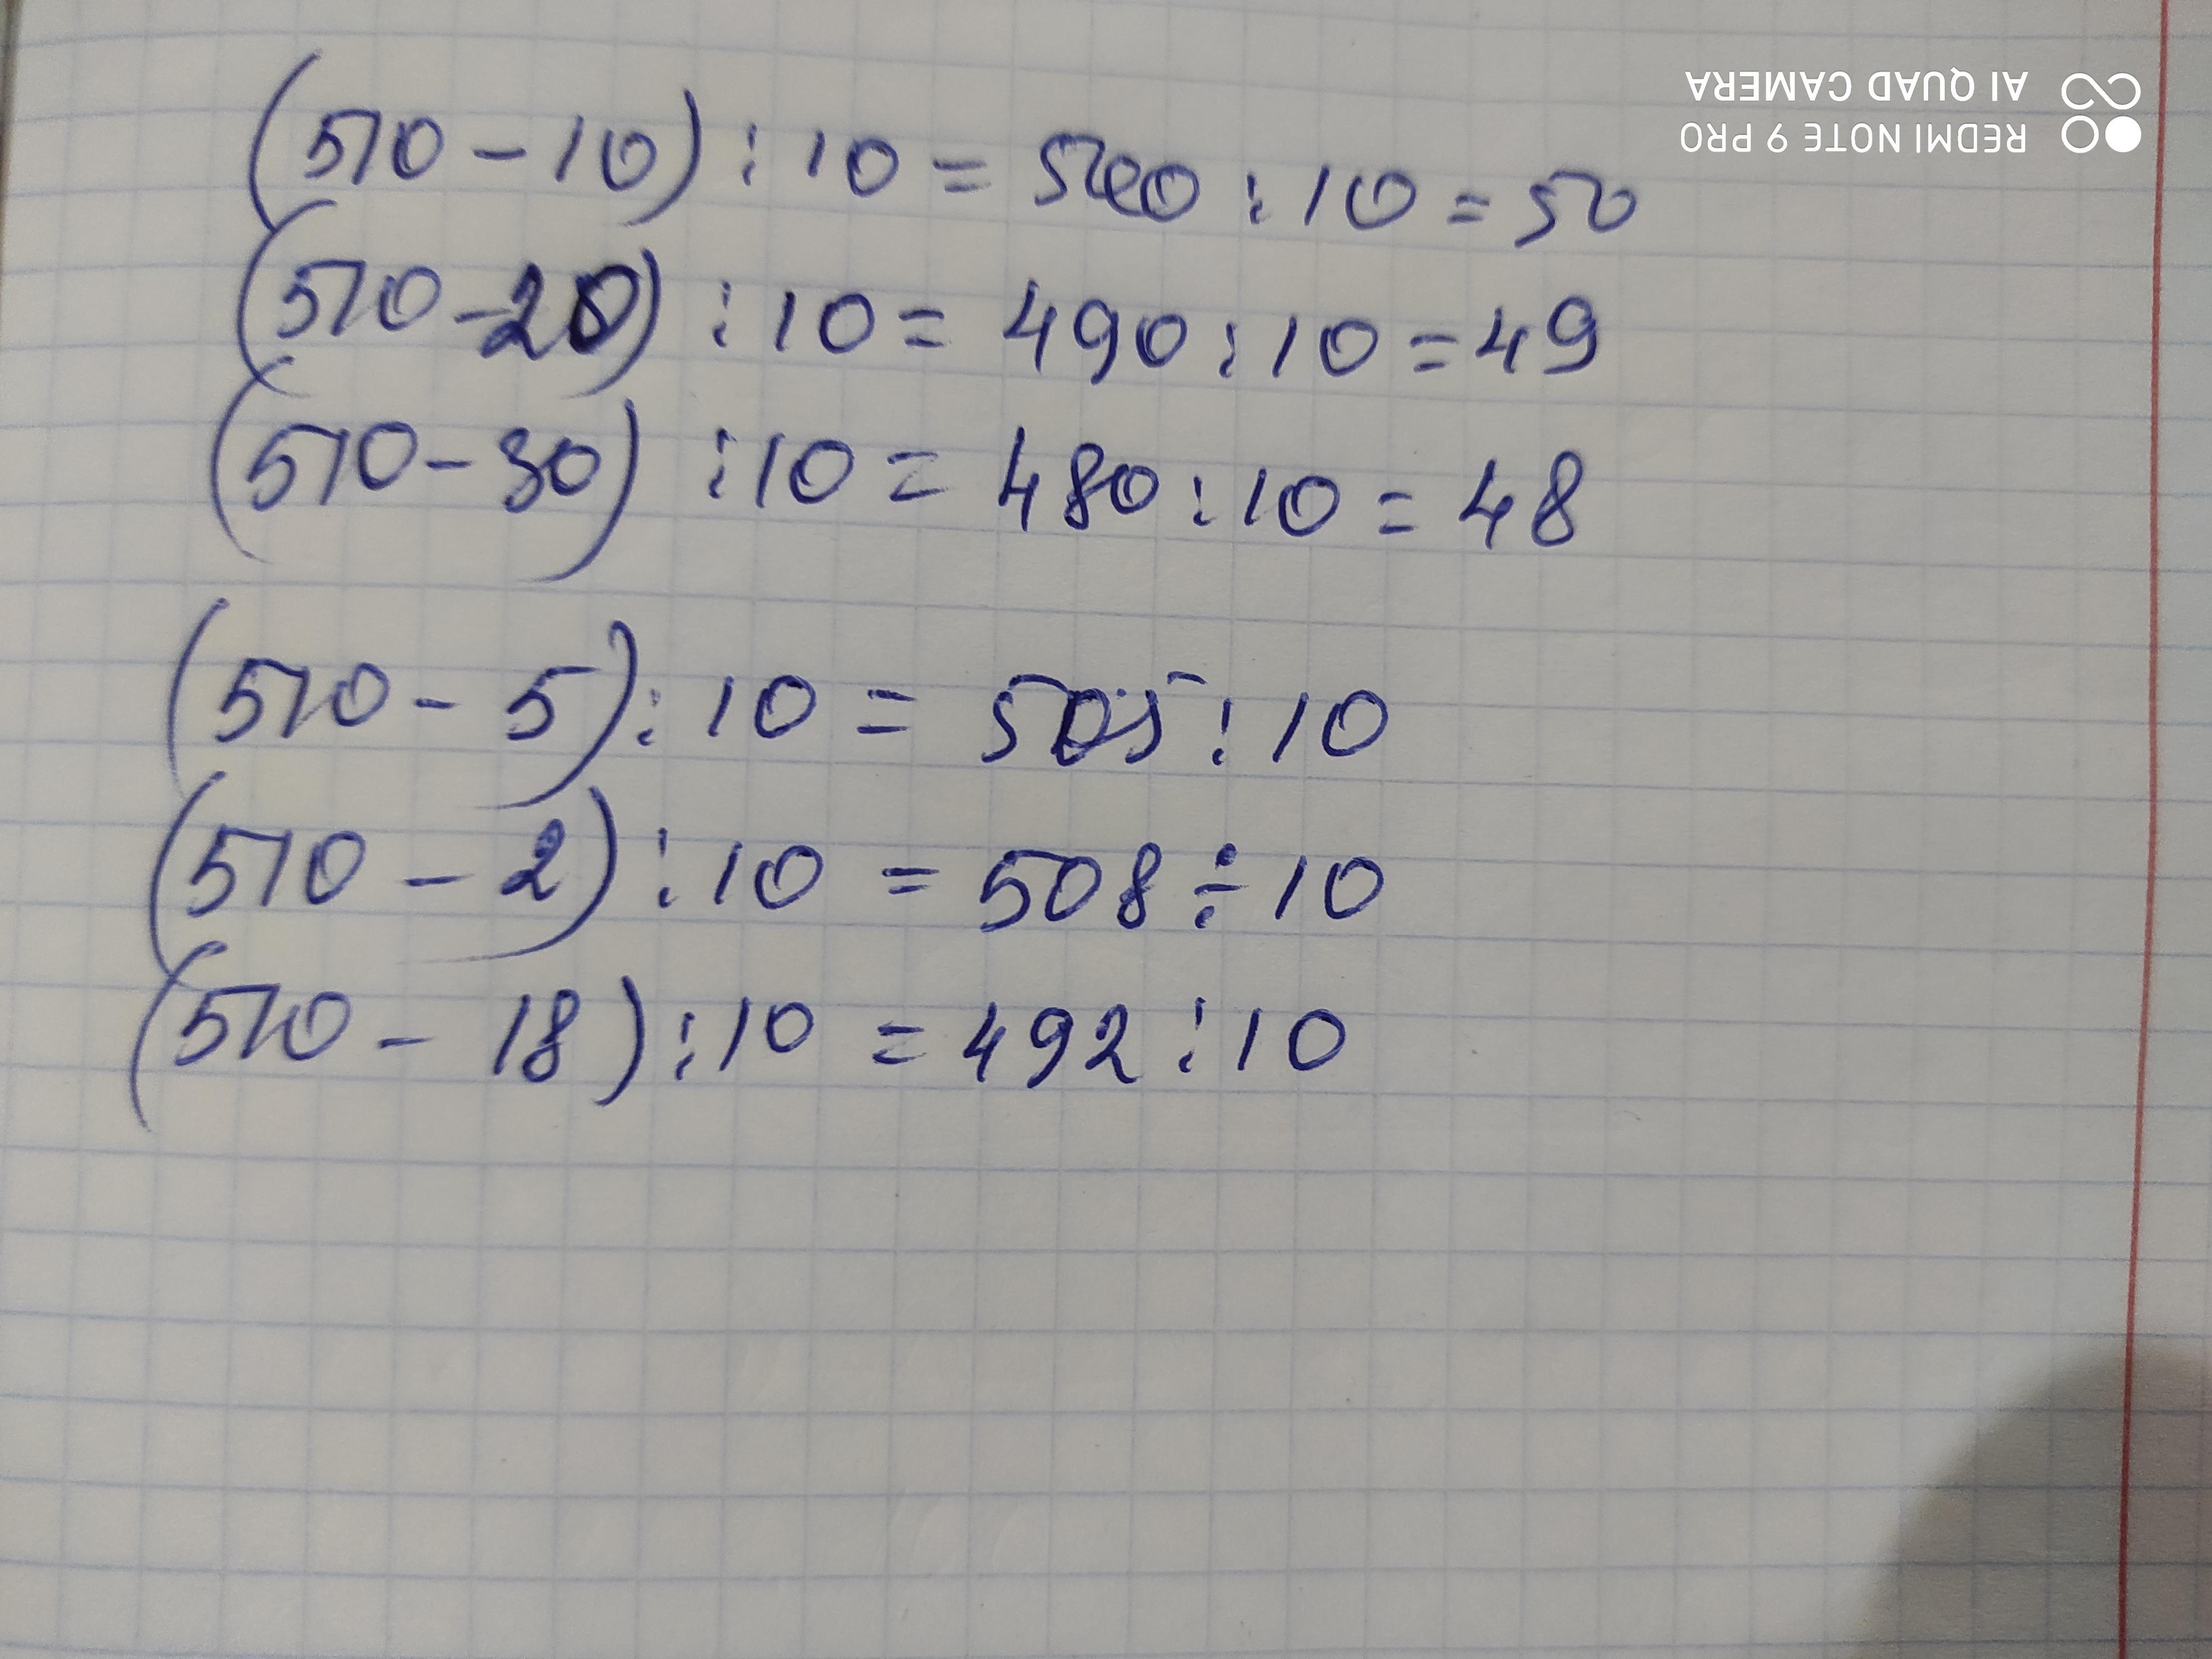 (510 - 10) : 10 = 500 : 10 = 50
(510 - 20) : 10 = 490 : 10 = 49
(510 - 30) : 10 = 480 : 10 = 48
(510 - 5) : 10 = 505 : 10
(510 - 2) : 10 = 508 ÷ 10
(510 - 18) : 10 = 492 : 10
REDMI NOTE 9 PRO
AI QUAD CAMERA